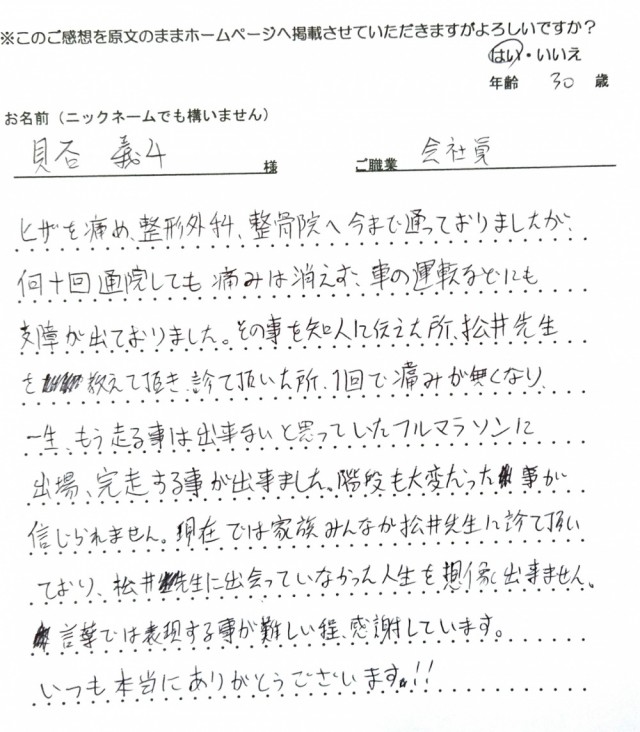 ※このご感想を原文のままホームページへ掲載させていただきますがよろしいですか？
はい・いいえ
年齢 30 歳
お名前（ニックネームでも構いません）
貝沼 義斗 様 ご職業 会社員
ヒザを痛め、整形外科、整骨院へ今まで通っておりましたが、
何十回通院しても痛みは消えず、車の運転などにも
支障が出ておりました。その事を知人に伝えた所、松井先生
を教えて頂き、診て頂いた所、1回で痛みが無くなり、
一生、もう走る事は出来ないと思っていたフルマラソンに
出場、完走する事が出来ました。階段も大変だった事が
信じられません。現在では家族みんなが松井先生に診て頂い
ており、松井先生に出会っていなかった人生を想像出来ません。
言葉では表現する事が難しい程、感謝しています。
いつも本当にありがとうございます。!!